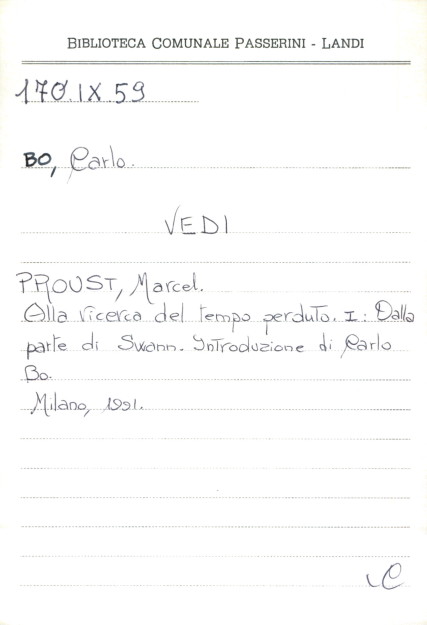 BIBLIOTECA COMUNALE PASSERINI - LANDI
170.IX.59
BO, Carlo.
VEDI
PROUST, Marcel.
Alla ricerca del tempo perduto. I: Dalla
parte di Swann. Introduzione di Carlo
Bo.
Milano, 1991.